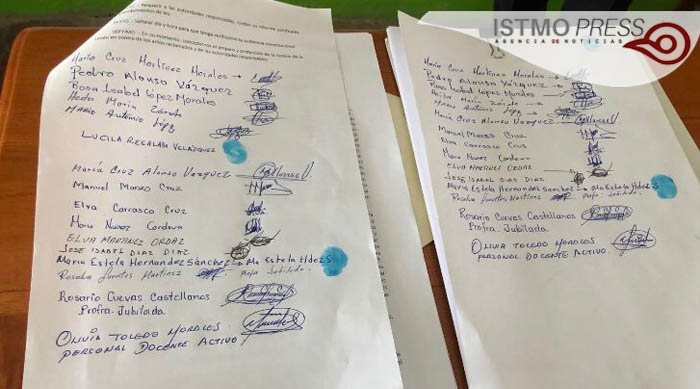 ISTMO PRESS
AGENCIA DE NOTICIAS
a las autoridades responsables,
SEXTO. - Señalar día y hora para que tenga verificativo la audiencia constitucional
SÉPTIMO. - En su momento, concedernos el amparo y protección de la justicia de la
María Cruz Martínez Morales
Pedro Alonso Vázquez
Rosa Isabel López Morales
Hector Marin Zarate
Mario Antonio López
LUCILA REGALADO VELAZQUEZ
María Cruz Alonso Vazquez
Manuel Manzo Cruz
Elva Carrasco Cruz
Mario Nuñez Cordova
ELVA MARTINEZ ORDAZ
JOSE ISABEL DIAZ DIAZ
Maria Estela Hernandez Sánchez Ma Estela Hdez S
Rosalva fuentes Martinez
Rosario Cuevas Castellanos
Profra. Jubilada
OLIVIA TOLEDO MORALES
PERSONAL DOCENTE ACTIVO
María Cruz Martinez Morales
Pedro Alonso Vázquez
Rosa Isabel López Morales
Hector Marin Zarate
Mario Antonio López
María Cruz Alonso Vazquez
Manuel Manzo Cruz
Elva Carrasco Cruz
Mario Nuñez Cordova
ELVA MARTINEZ ORDAZ
JOSE ISABEL DIAZ DIAZ
Maria Estela Hernandez Sánchez Ma Estela Hdez S
Rosalva fuentes Martinez
Rosario Cuevas Castellanos
Profra. Jubilada
OLIVIA TOLEDO MORALES
PERSONAL DOCENTE ACTIVO